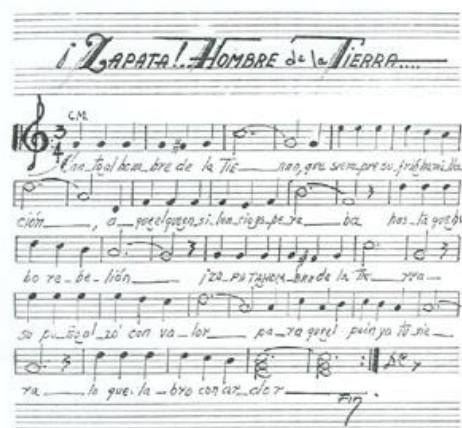 ¡ZAPATA!. HOMBRE de la TIERRA....
C.M.
3
4
Can_to_al hom_bre de la Tie___ rra, que siem_pre su_frió humi_lla
ción___, a___quel que en_si_len_cio_es_pe_ra___ba has_ta que hu
bo re_be_lión___ ¡ZA_PATA HOM_BRE de la Tie___rra___
su pu_ño al_zó con va_lor___ pa_ra que el ___ tie___
rra___ lo que la_bró con ar_dor___
Fin